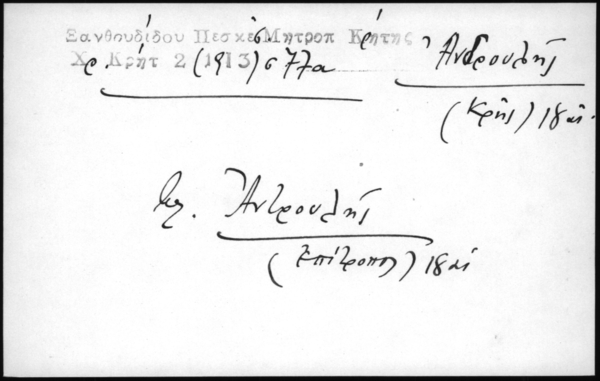 Ξανθουδίδου Πεσκέσ Μητροπ Κρήτης
Χρ. Κρήτ 2 (1913) σ 77α
Ἀνδρουλῆς
(Κρής) 18 αἰ.
Ἀντρουλῆς
(Ἐπίτροπος) 18 αἰ